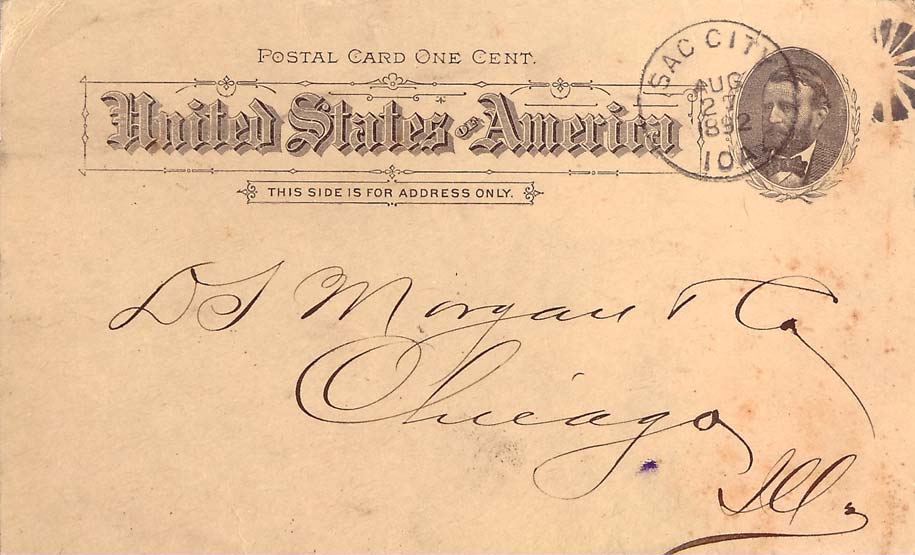 POSTAL CARD ONE CENT.
United States OF America
THIS SIDE IS FOR ADDRESS ONLY.
SAC CITY
AUG
1892
IOWA
D S Morgan & Co
Chicago
Ill.